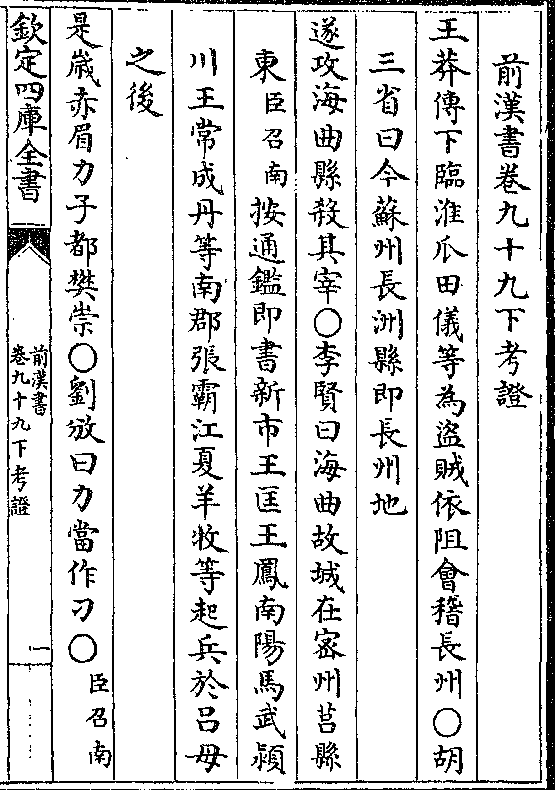 前漢書卷九十九下考證
王莽傳下臨淮爪田儀等為盜賊依阻會稽長州〇胡
三省曰今蘇州長洲縣即長州地
遂攻海曲縣殺其宰〇李賢曰海曲故城在宻州莒縣
東臣召南按通鑑即書新市王匡王鳳南陽馬武潁
川王常成丹等南郡張霸江夏羊牧等起兵於吕毋
之後
是嵗赤眉力子都樊崇〇劉攽曰力當作刀〇臣召南
欽定四庫全書
前漢書
卷九十九下考證
一